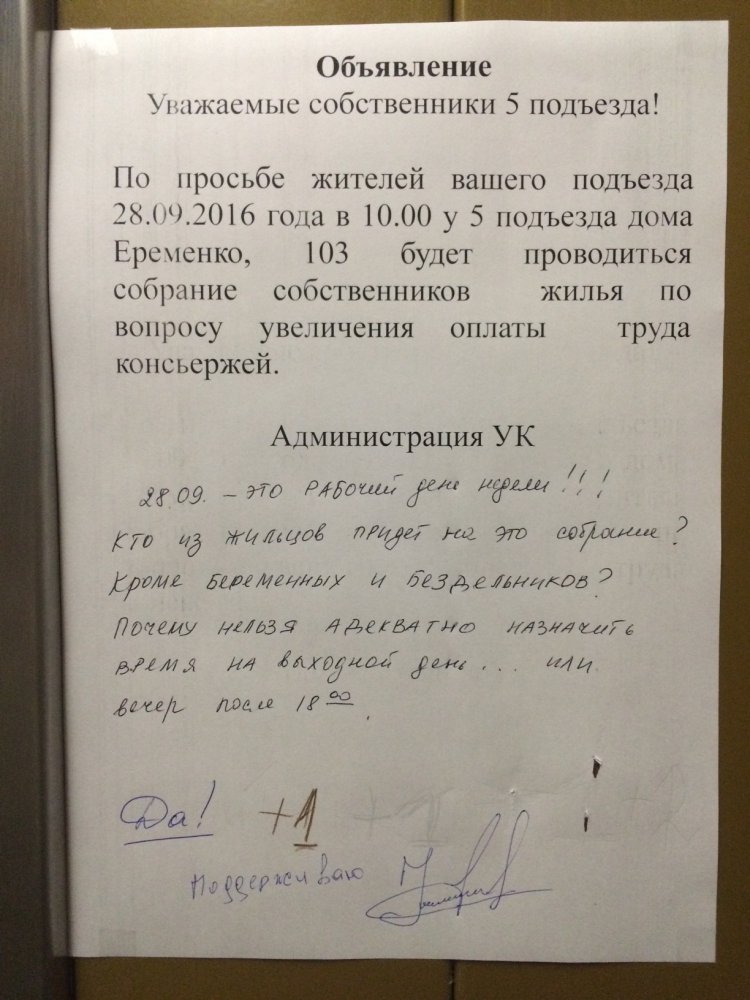 Объявление
Уважаемые собственники 5 подъезда!
По просьбе жителей вашего подъезда
28.09.2016 года в 10.00 у 5 подъезда дома
Еременко, 103 будет проводиться
собрание собственников жилья по
вопросу увеличения оплаты труда
консьержей.
Администрация УК
28.09. – это рабочий день недели!!!
Кто из жильцов придет на это собрание?
Кроме беременных и бездельников?
Почему нельзя адекватно назначить
время на выходной день... или
вечер после 18 00.
Да! +1
Поддерживаю